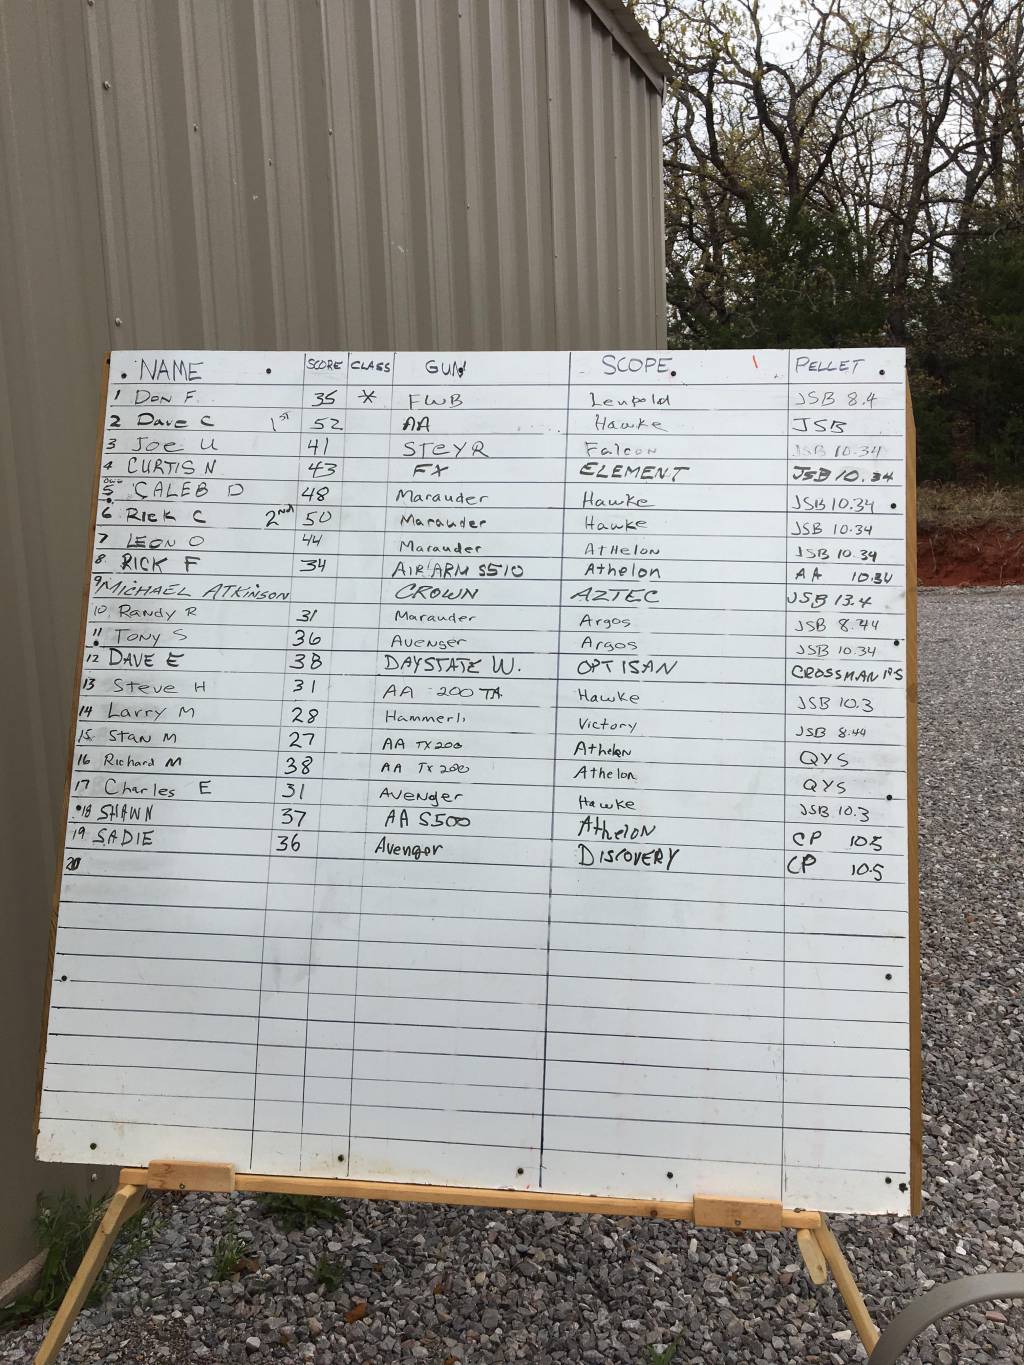 NAME SCORE CLASS GUN SCOPE PELLET
1 DON F. 35 * FWB Leupold JSB 8.4
2 Dave C 1st 52 AA Hawke JSB
3 Joe U 41 STEYR Falcon JSB 10.34
4 CURTIS N 43 FX ELEMENT JSB 10.34
5 CALEB D 48 Marauder Hawke JSB 10.34
6 RICK C 2nd 50 Marauder Hawke JSB 10.34
7 LEON O 44 Marauder AtHelon JSB 10.34
8 RICK F 34 AIR ARM S510 Athelon AA 10.34
9 MICHAEL ATKINSON CROWN AZTEC JSB 13.4
10 Randy R 31 Marauder Argos JSB 8.44
11 Tony S 36 Avenger Argos JSB 10.34
12 DAVE E 38 DAYSTATE W. OPTISAN CROSSMAN
13 Steve H 31 AA 200 TA Hawke JSB 10.3
14 Larry M 28 Hammerli Victory JSB 8.44
15 Stan M 27 AA TX200 Athelon QYS
16 Richard M 38 AA TX200 Athelon QYS
17 Charles E 31 Avenger Hawke JSB 10.3
18 SHAWN 37 AA S500 Athelon CP 10.5
19 SADIE 36 Avenger DISCOVERY CP 10.5
20